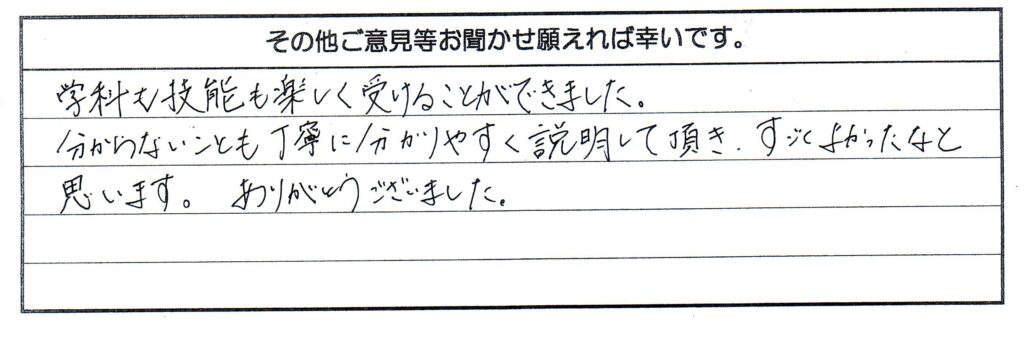 その他ご意見等お聞かせ願えれば幸いです。
学科も技能も楽しく受けることができました。
分からないことも丁寧に分かりやすく説明して頂き、すごくよかったなと
思います。 ありがとうございました。